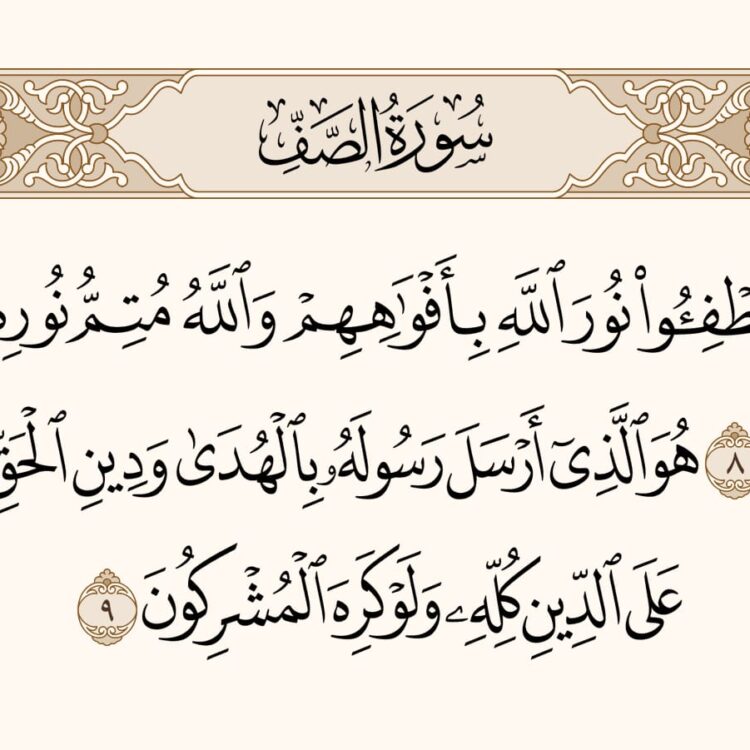 سُورَةُ الصَّفِّ
طْفِـُٔوا۟ نُورَ ٱللَّهِ بِأَفْوَٰهِهِمْ وَٱللَّهُ مُتِمُّ نُورِهِ
٨ هُوَ ٱلَّذِىٓ أَرْسَلَ رَسُولَهُۥ بِٱلْهُدَىٰ وَدِينِ ٱلْحَقِّ
عَلَى ٱلدِّينِ كُلِّهِۦ وَلَوْ كَرِهَ ٱلْمُشْرِكُونَ ٩